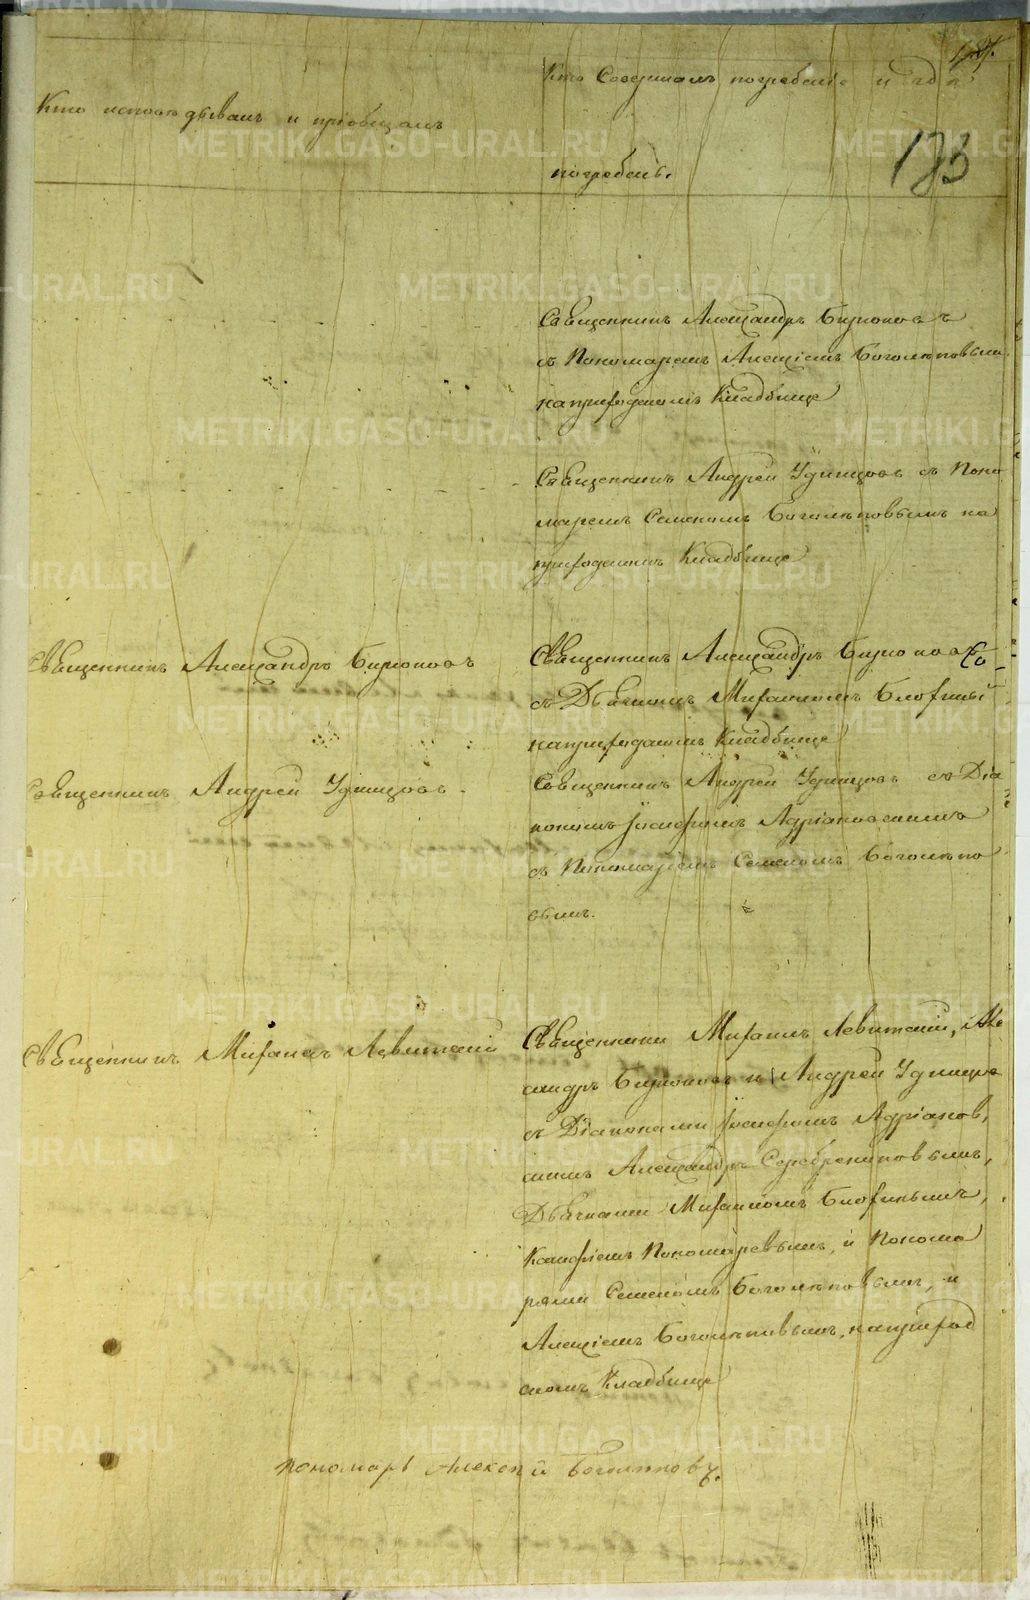 Кто исповѣдывалъ и пріобщалъ
Кто Совершалъ погребеніе и гдѣ
погребенъ.
173
Священникъ Александръ Бирюковъ
съ Пономаремъ Алексіемъ Боголѣповымъ
на приходскомъ Кладбище
Священникъ Андрей Удинцовъ съ Поно
маремъ Семеномъ Боголѣповымъ на
приходскомъ Кладбище
Священникъ Александръ Бирюковъ
Священникъ Александръ Бирюковъ
съ Дьячкомъ Михаиломъ
на приходскомъ Кладбище
Священникъ Андрей Удинцовъ.
Священникъ Андрей Удинцовъ съ Діа
кономъ Іосифомъ Адріановскимъ
съ Пономаремъ Семеномъ Боголѣпо
вымъ.
Священникъ Михаилъ Левитскій
Священники Михаилъ Левитскій, Алек
сандръ Бирюковъ и Андрей Удинцовъ
съ Діаконами Іосифомъ Адріанов,
скимъ Александръ Серебрениковымъ,
Дьячками Михаиломъ
Пономаревымъ, и Понома
рями Семеномъ Боголѣповымъ, и
Алексіемъ Боголѣповымъ, на приход
скомъ Кладбище
Пономарь Алексѣй Боголѣповъ.
METRIKI.GASO-URAL.RU